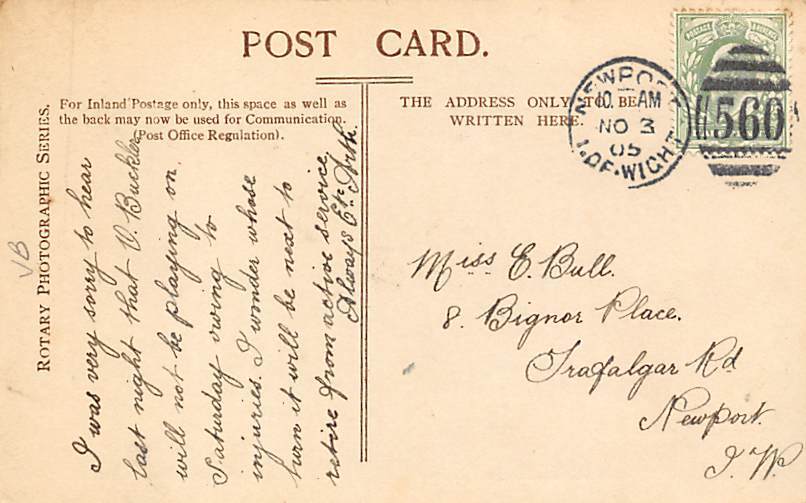 POST CARD.
For Inland Postage only, this space as well as
the back may now be used for Communication.
(Post Office Regulation).
THE ADDRESS ONLY TO BE
WRITTEN HERE.
ROTARY PHOTOGRAPHIC SERIES.
VB
I was very sorry to hear
last night that V. Buckler
will not be playing on
Saturday owing to
injuries. I wonder whose
turn it will be next to
retire from active service
Always
Miss E. Bull.
8. Bignor Place.
Trafalgar Rd
Newport.
I.W.
NEWPORT
10. AM
NO 3
05
I.OF.WIGHT
560
POSTAGE & REVENUE